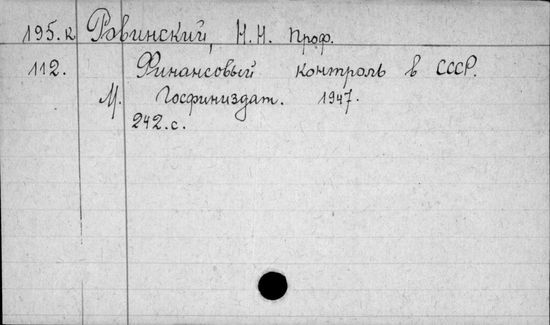 195.к Ровинский, Н.Н. проф.
112. Финансовый контроль в СССР.
М. Госфиниздат. 1947.
242.с.